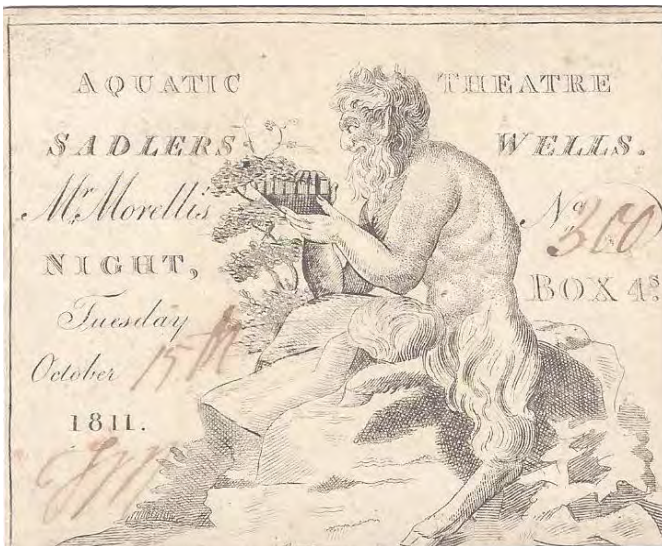 AQUATIC THEATRE
SADLERS WELLS.
Mr. Morellis
No. 300
NIGHT,
BOX 4s.
Tuesday
October 15th
1811.